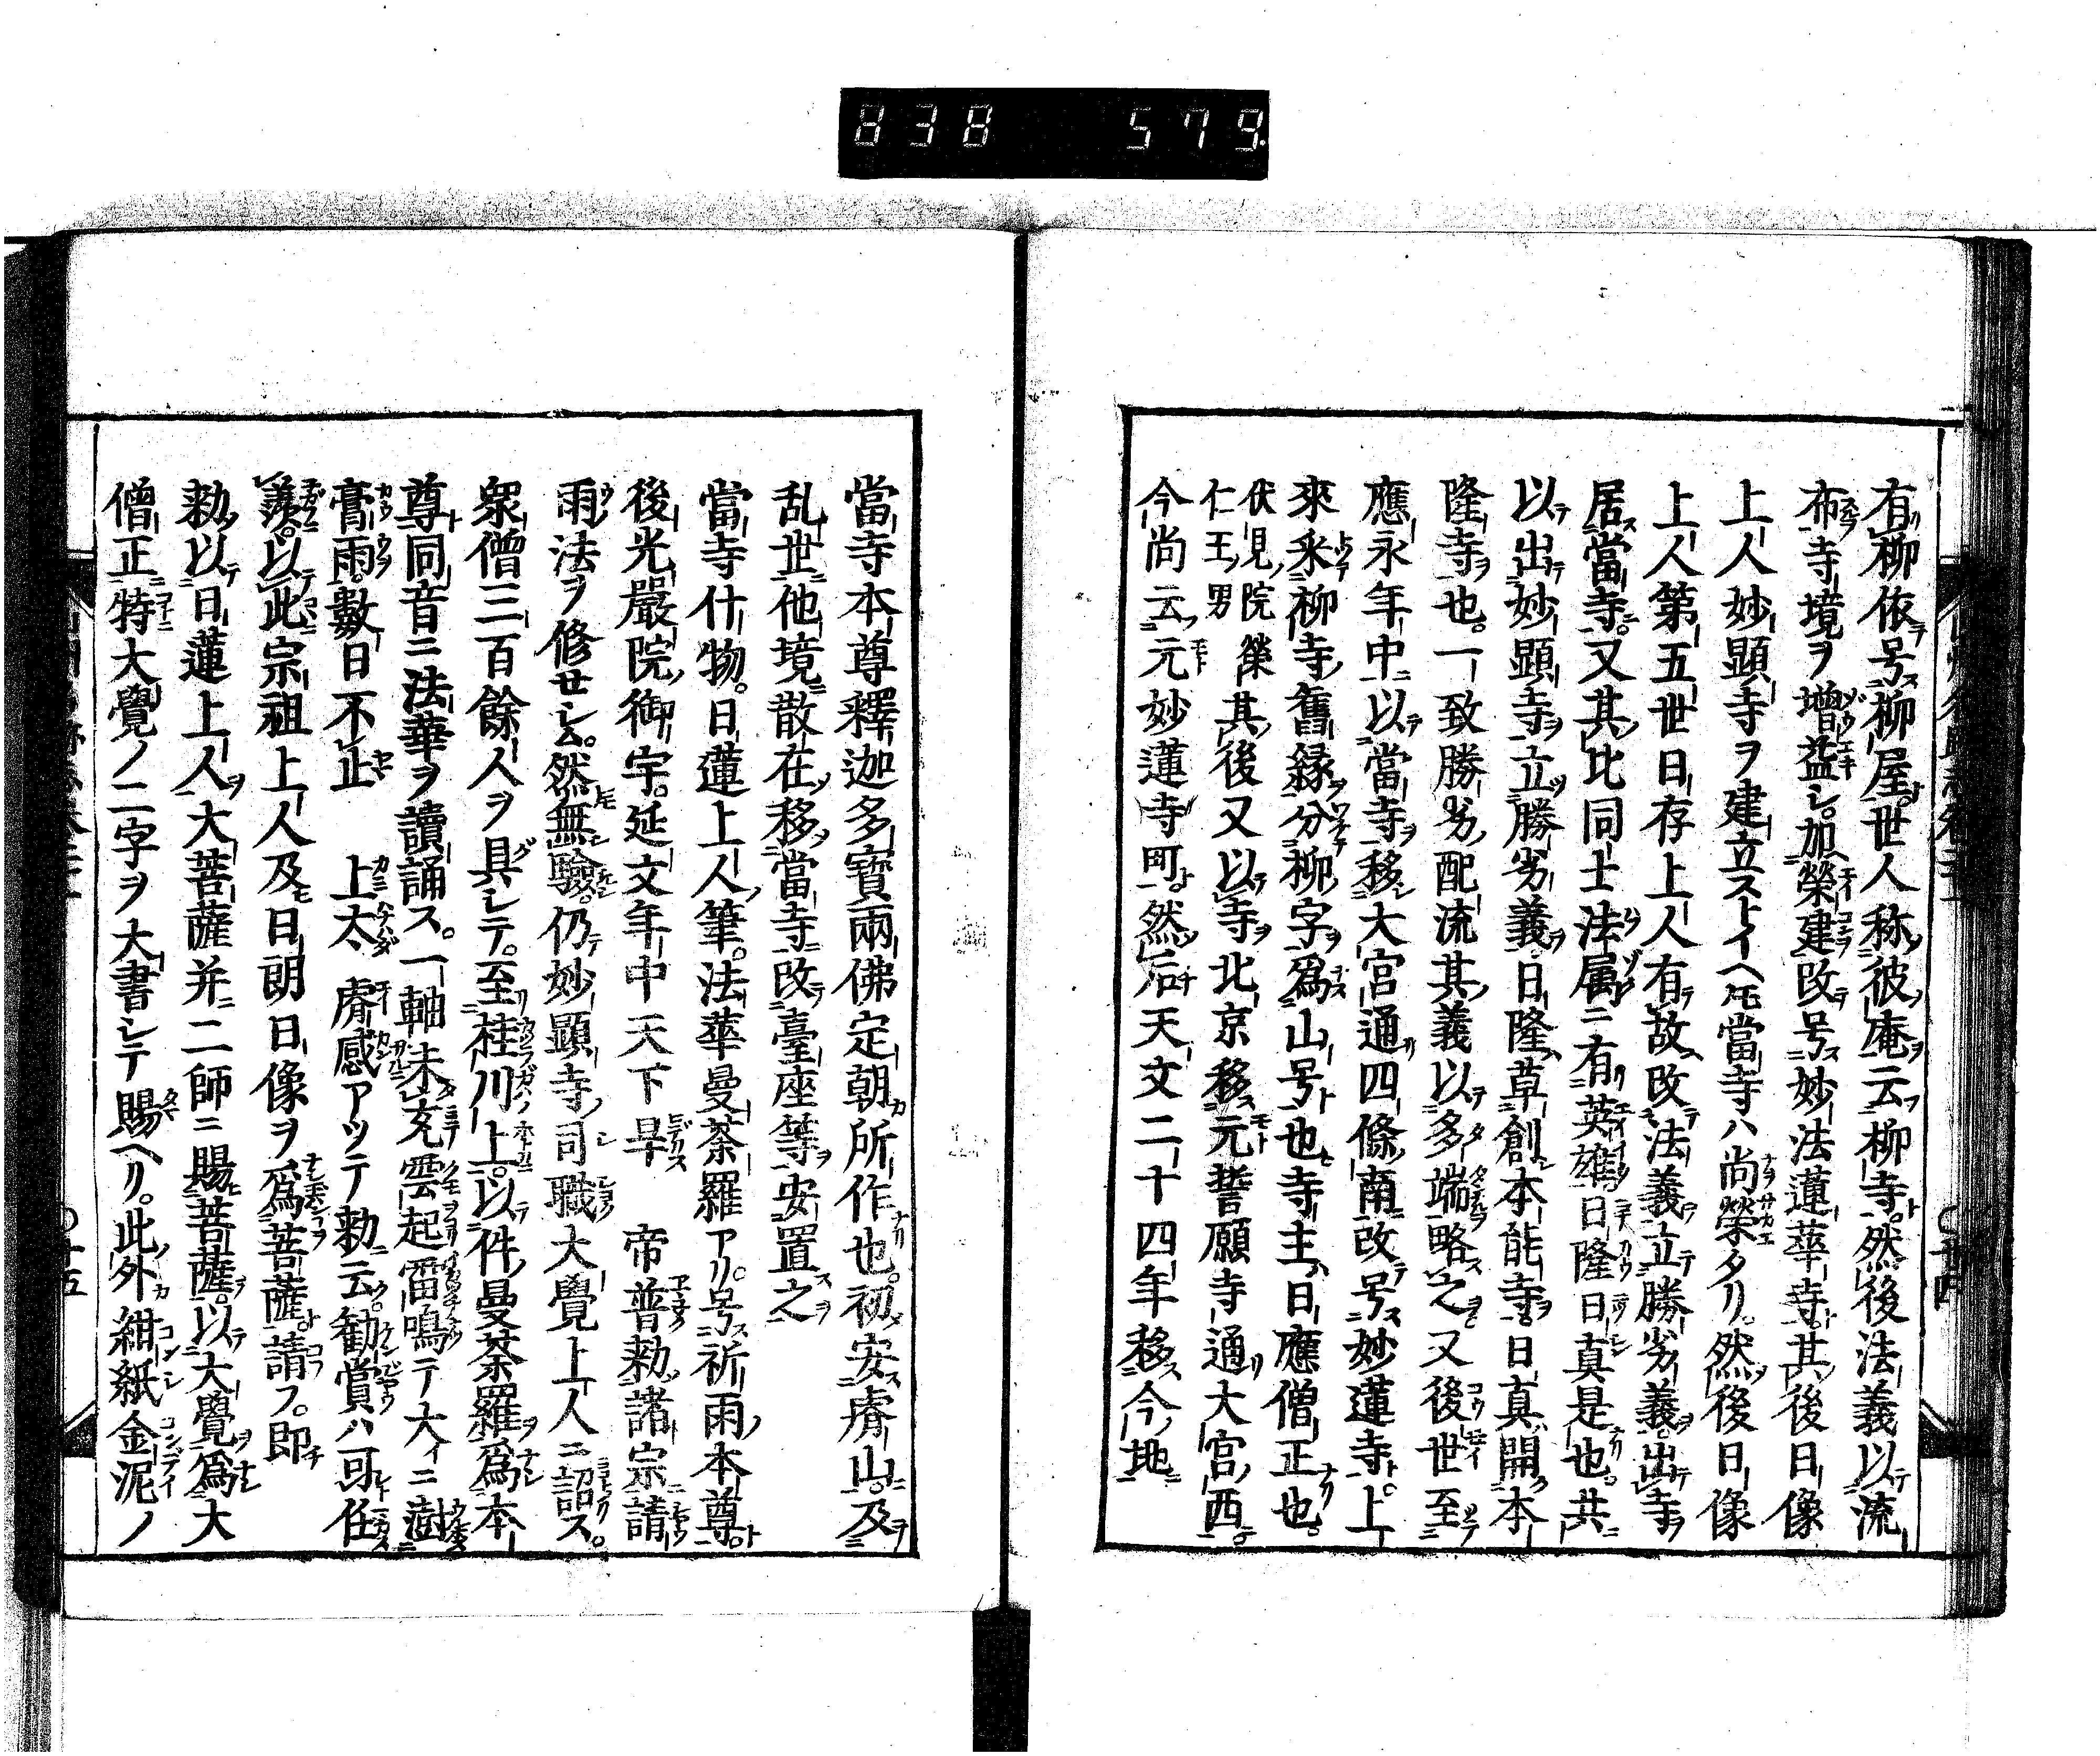 838 579.
有柳依号柳屋世人称彼庵云柳寺然後法義以流
布寺境ヲ増益シ加榮建改号妙法蓮華寺其後日像
上人妙顕寺ヲ建立ストイヘ𪜈當寺ハ尚榮タリ然後日像
上人第五世日存上人有故改法義立勝劣義出寺
居當寺又其比同士法属ニ有英雄日隆日真是也共
以出妙顕寺立勝劣義日隆草創本能寺日真開本
隆寺也一致勝劣配流其義以多端略之又後世至
應永年中以當寺移大宮通四條南改号妙蓮寺上
來釆柳寺舊縁分柳字爲山号也寺主日應僧正也
伏見院榮
仁王男
其後又以寺北京移元誓願寺通大宮西
今尚云元妙蓮寺町然后天文二十四年移今地
當寺本尊釋迦多寶兩佛定朝所作也初安㟴山及
乱世他境散在移當寺改臺座等安置之
當寺什物日蓮上人筆法華曼荼羅アリ号祈雨本尊
後光嚴院御宇延文年中天下旱 帝普勅諸宗請
雨法ヲ修せシム然無驗仍妙顕寺司職大覺上人ニ詔ス
衆僧三百餘人ヲ具シテ至桂川上以件曼荼羅爲本
尊同音ニ法華ヲ讀誦ス一軸未充雲起雷鳴テ大イニ澍
膏雨數日不止 上太 睿感アッテ勅云勧賞ハ可任
羨以此宗祖上人及日朗日像ヲ爲菩薩請フ即
勅以日蓮上人大菩薩并二師ニ賜菩薩以大覺爲大
僧正特大覺ノ二字ヲ大書シテ賜ヘリ此外紺紙金泥ノ